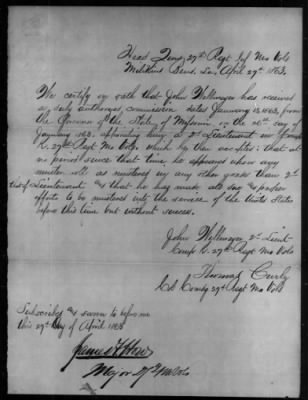 Head Qrs, 27th Regt Inf Mo Vols
Millikins Bend, La, April 29th 1863.
We certify on oath that John Wellmeyer has received
a duly authorized commission dated January 15, 1863, from
the Governor of the State of Missouri on the 15th day of
January 1863. appointing him a 2d Lieutenant in Comp
K. 27th Regt Mo Vols. which by him accepted: that at
no period since that time he appears upon any
muster roll as mustered in any other grade than 2d
Lieutenant & that he has made all due & proper
efforts to be mustered into the service of the United States
before this time but without success.
John Wellmeyer 2d Lieut
Comp K. 27th Regt Mo Vols
Thomas Curly
Col Comdg 27th Regt Mo Vols
Subscribed & sworn to before me
this 29th day of April 1863
James
Major Mo Vols